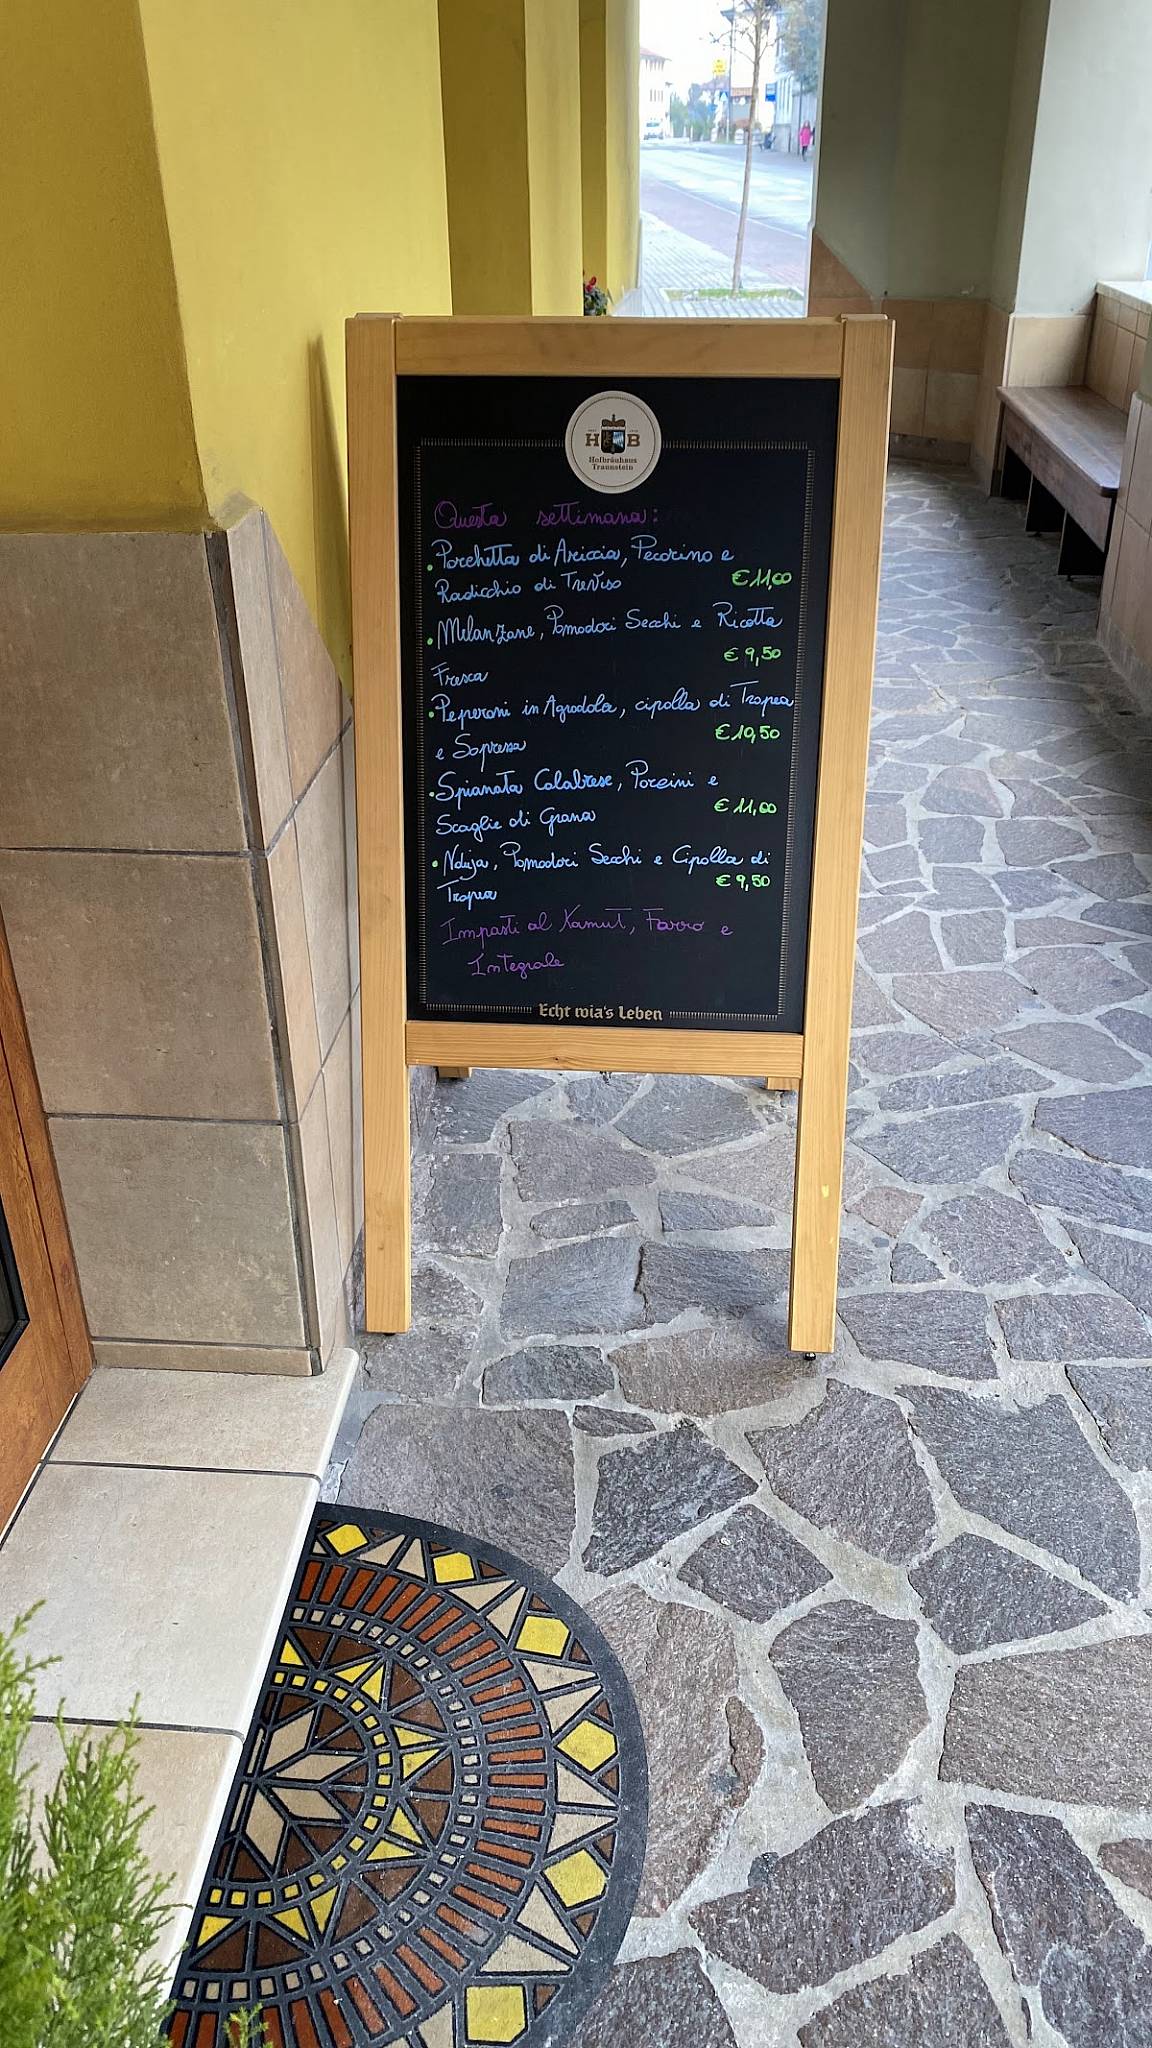 H B
Hofbräuhaus
Traunstein
Questa settimana:
• Porchetta di Ariccia, Pecorino e
Radicchio di Treviso € 11,00
• Melanzane, Pomodori Secchi e Ricotta
€ 9,50
Fresca
• Peperoni in Agrodola, cipolla di Tropea
€ 10,50
e Sopressa
• Spianata Calabrese, Porcini e
€ 11,00
Scaglie di Grana
• Nduja, Pomodori Secchi e Cipolla di
€ 9,50
Tropea
Impasti al Kamut, Farro e
Integrale
Echt wia's Leben